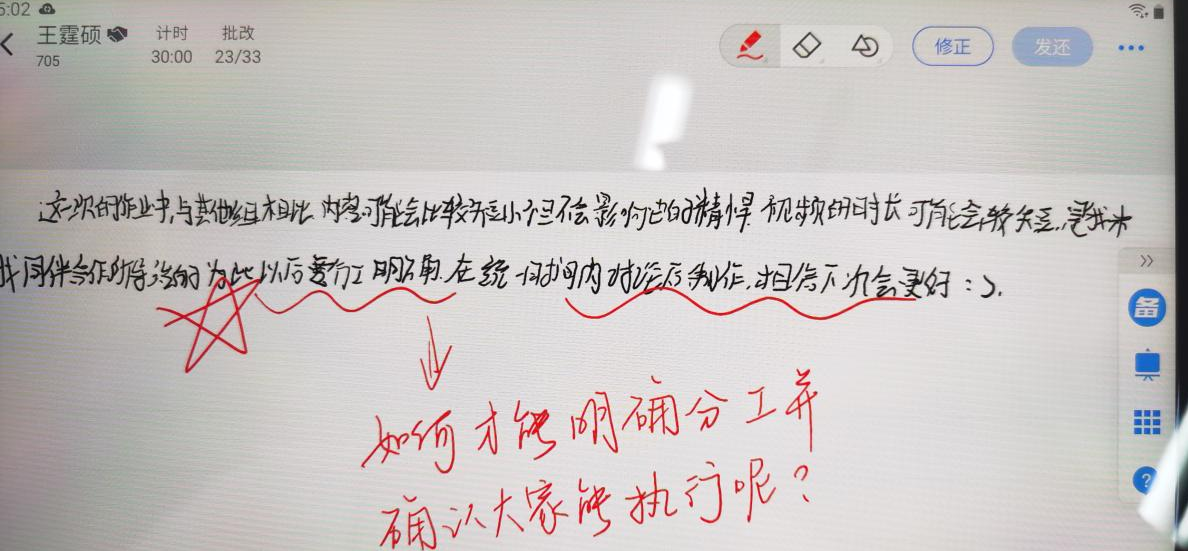 5:02
王霆硕 计时 批改 修正 发还
705 30:00 23/33
这一次的作业中,与其他组相比 内容可能会比较短小,但不会影响它的精悍. 视频的时长可能会较长,是我未
找同伴合作 为此以后要分工明确. 在统一时间内讨论后制作,相信下次会更好:).
备
如何才能明确分工并
确认大家能执行呢?
?